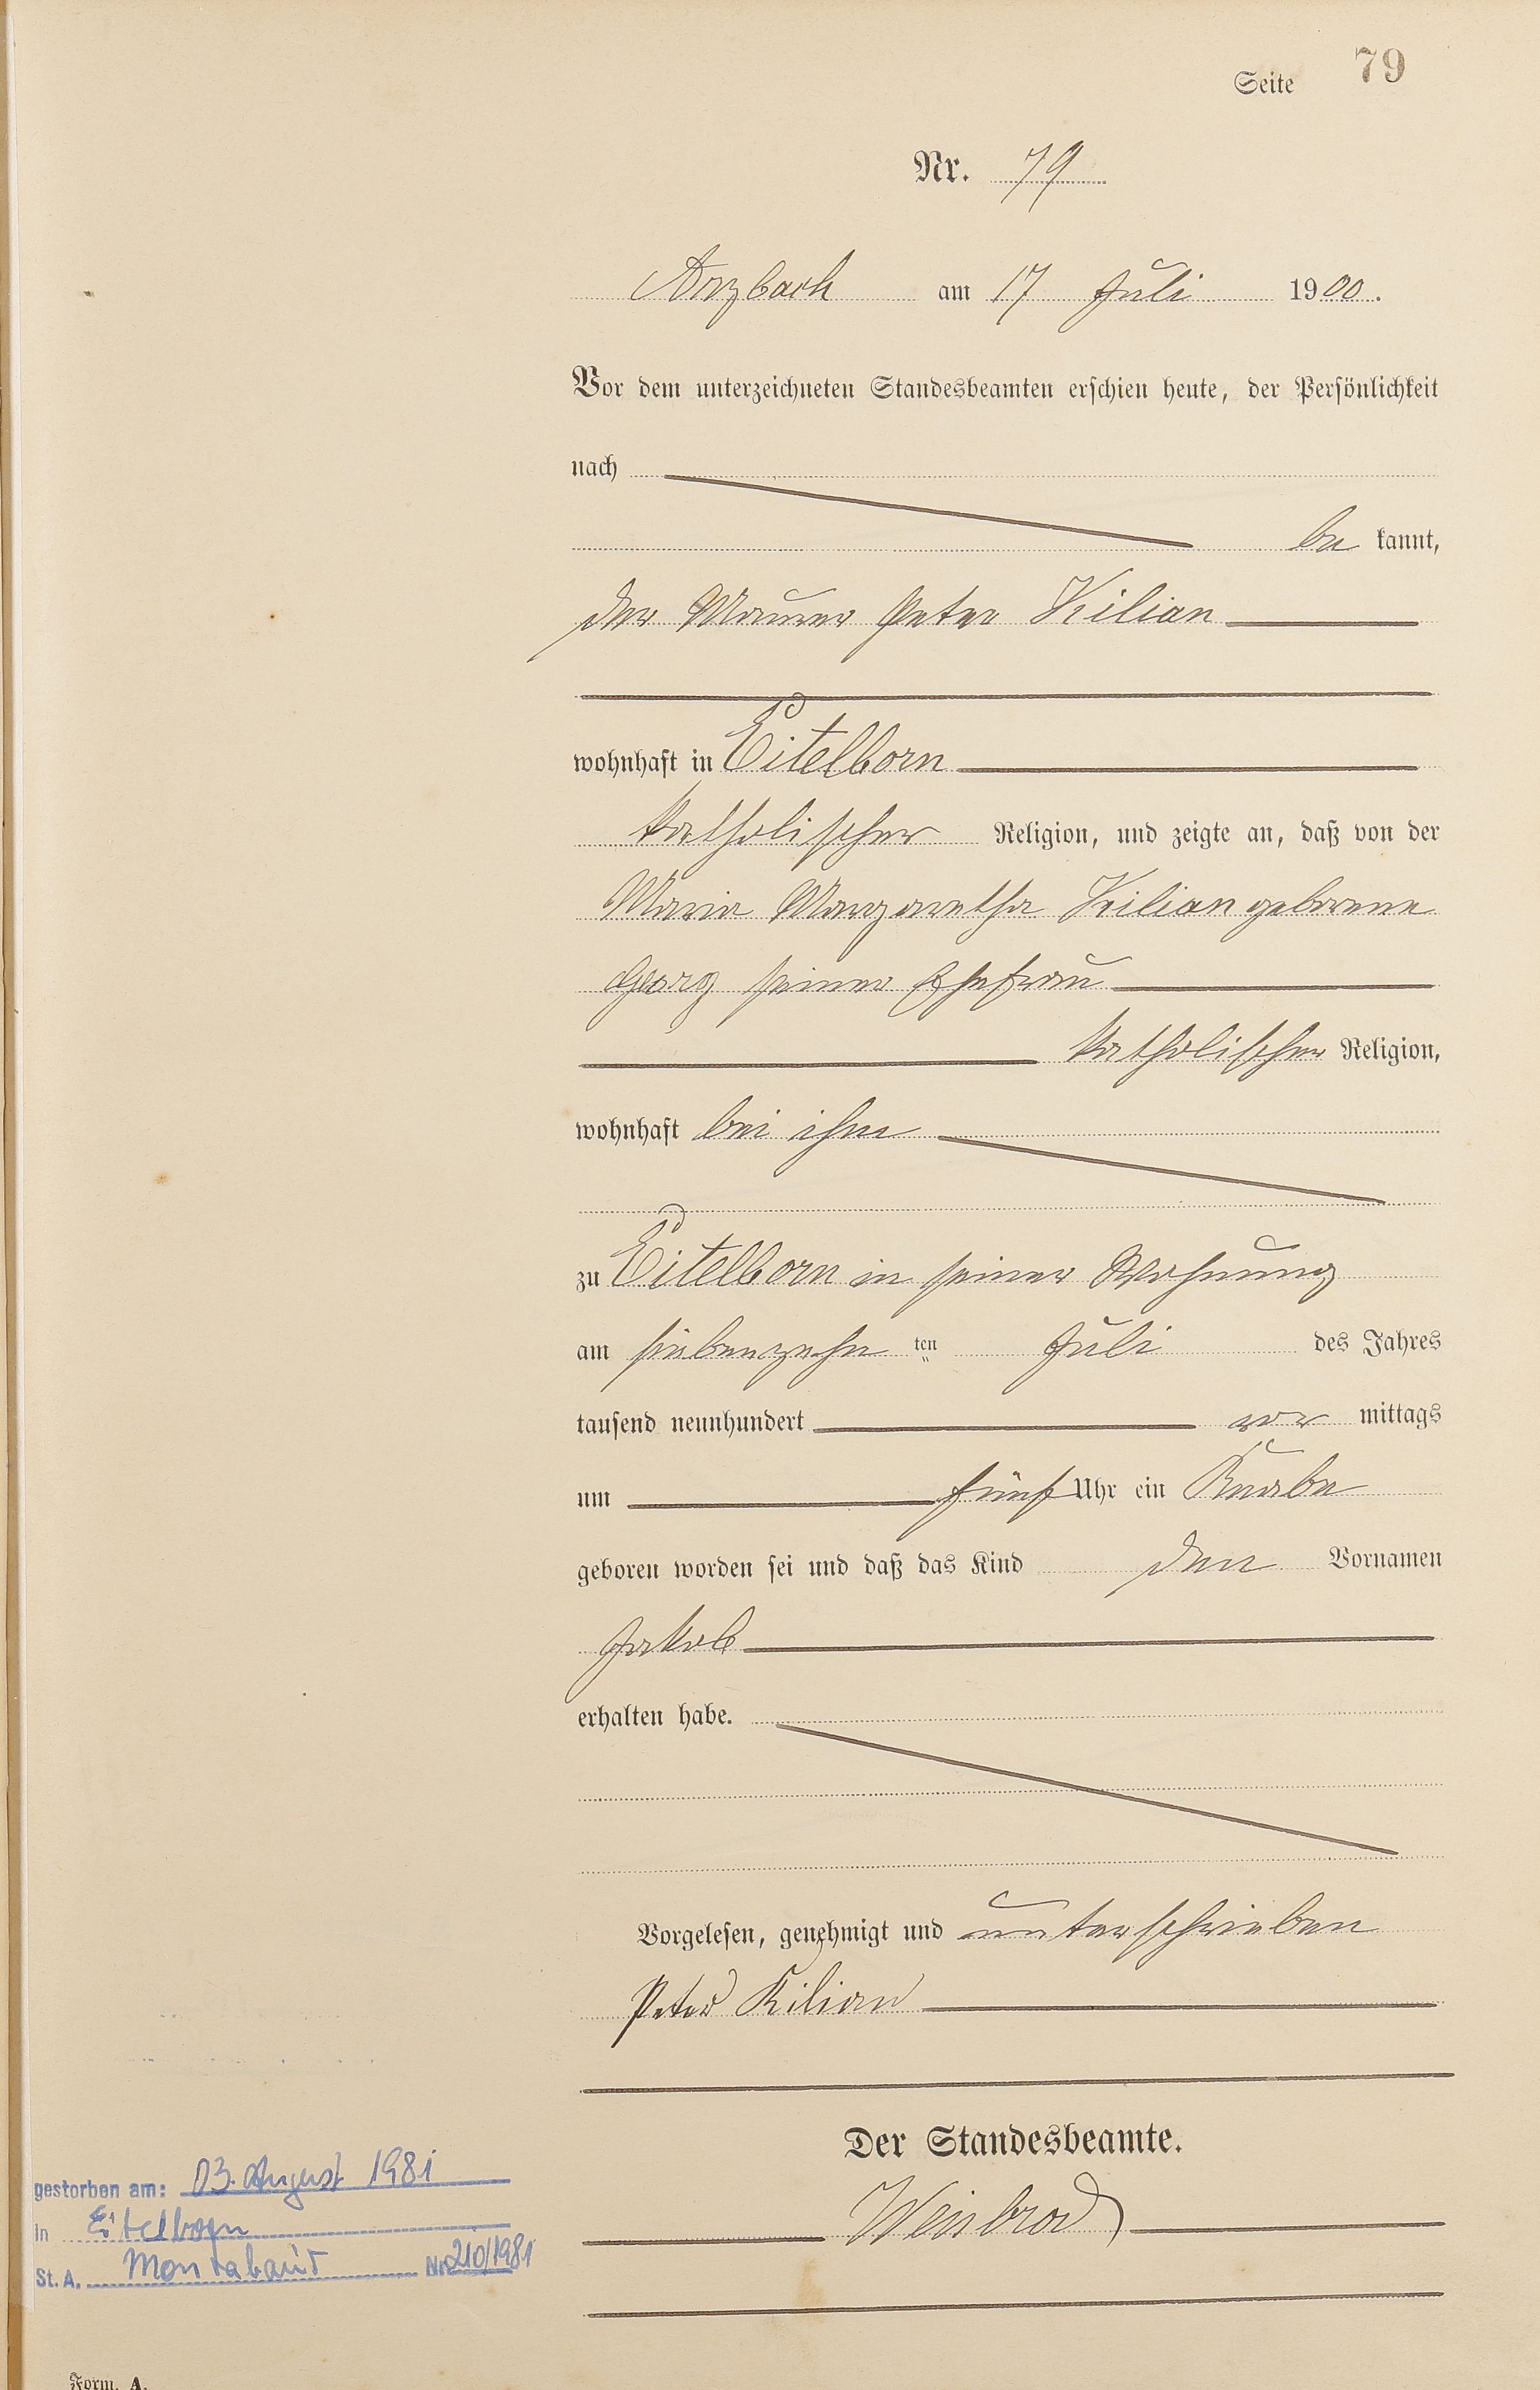 Seite 79
Nr. 79
Arzbach am 17 Juli 1900.
Vor dem unterzeichneten Standesbeamten erschien heute, der Persönlichkeit
nach
be kannt,
der Maurer Peter Kilian
wohnhaft in Eitelborn
katholischer Religion, und zeigte an, daß von der
Maria Margaretha Kilian geborene
Georg seiner Ehefrau
katholischer Religion,
wohnhaft bei ihm
zu Eitelborn in seiner Wohnung
am siebenzehn ten Juli des Jahres
tausend neunhundert vor mittags
um fünf Uhr ein Knabe
geboren worden sei und daß das Kind den Vornamen
Jakob
erhalten habe.
Vorgelesen, genehmigt und unterschrieben
Peter Kilian
Der Standesbeamte.
Weisbrod
gestorben am: 03. August 1981
in Eitelborn
St. A. Montabaur Nr. 210/1981
Form. A.